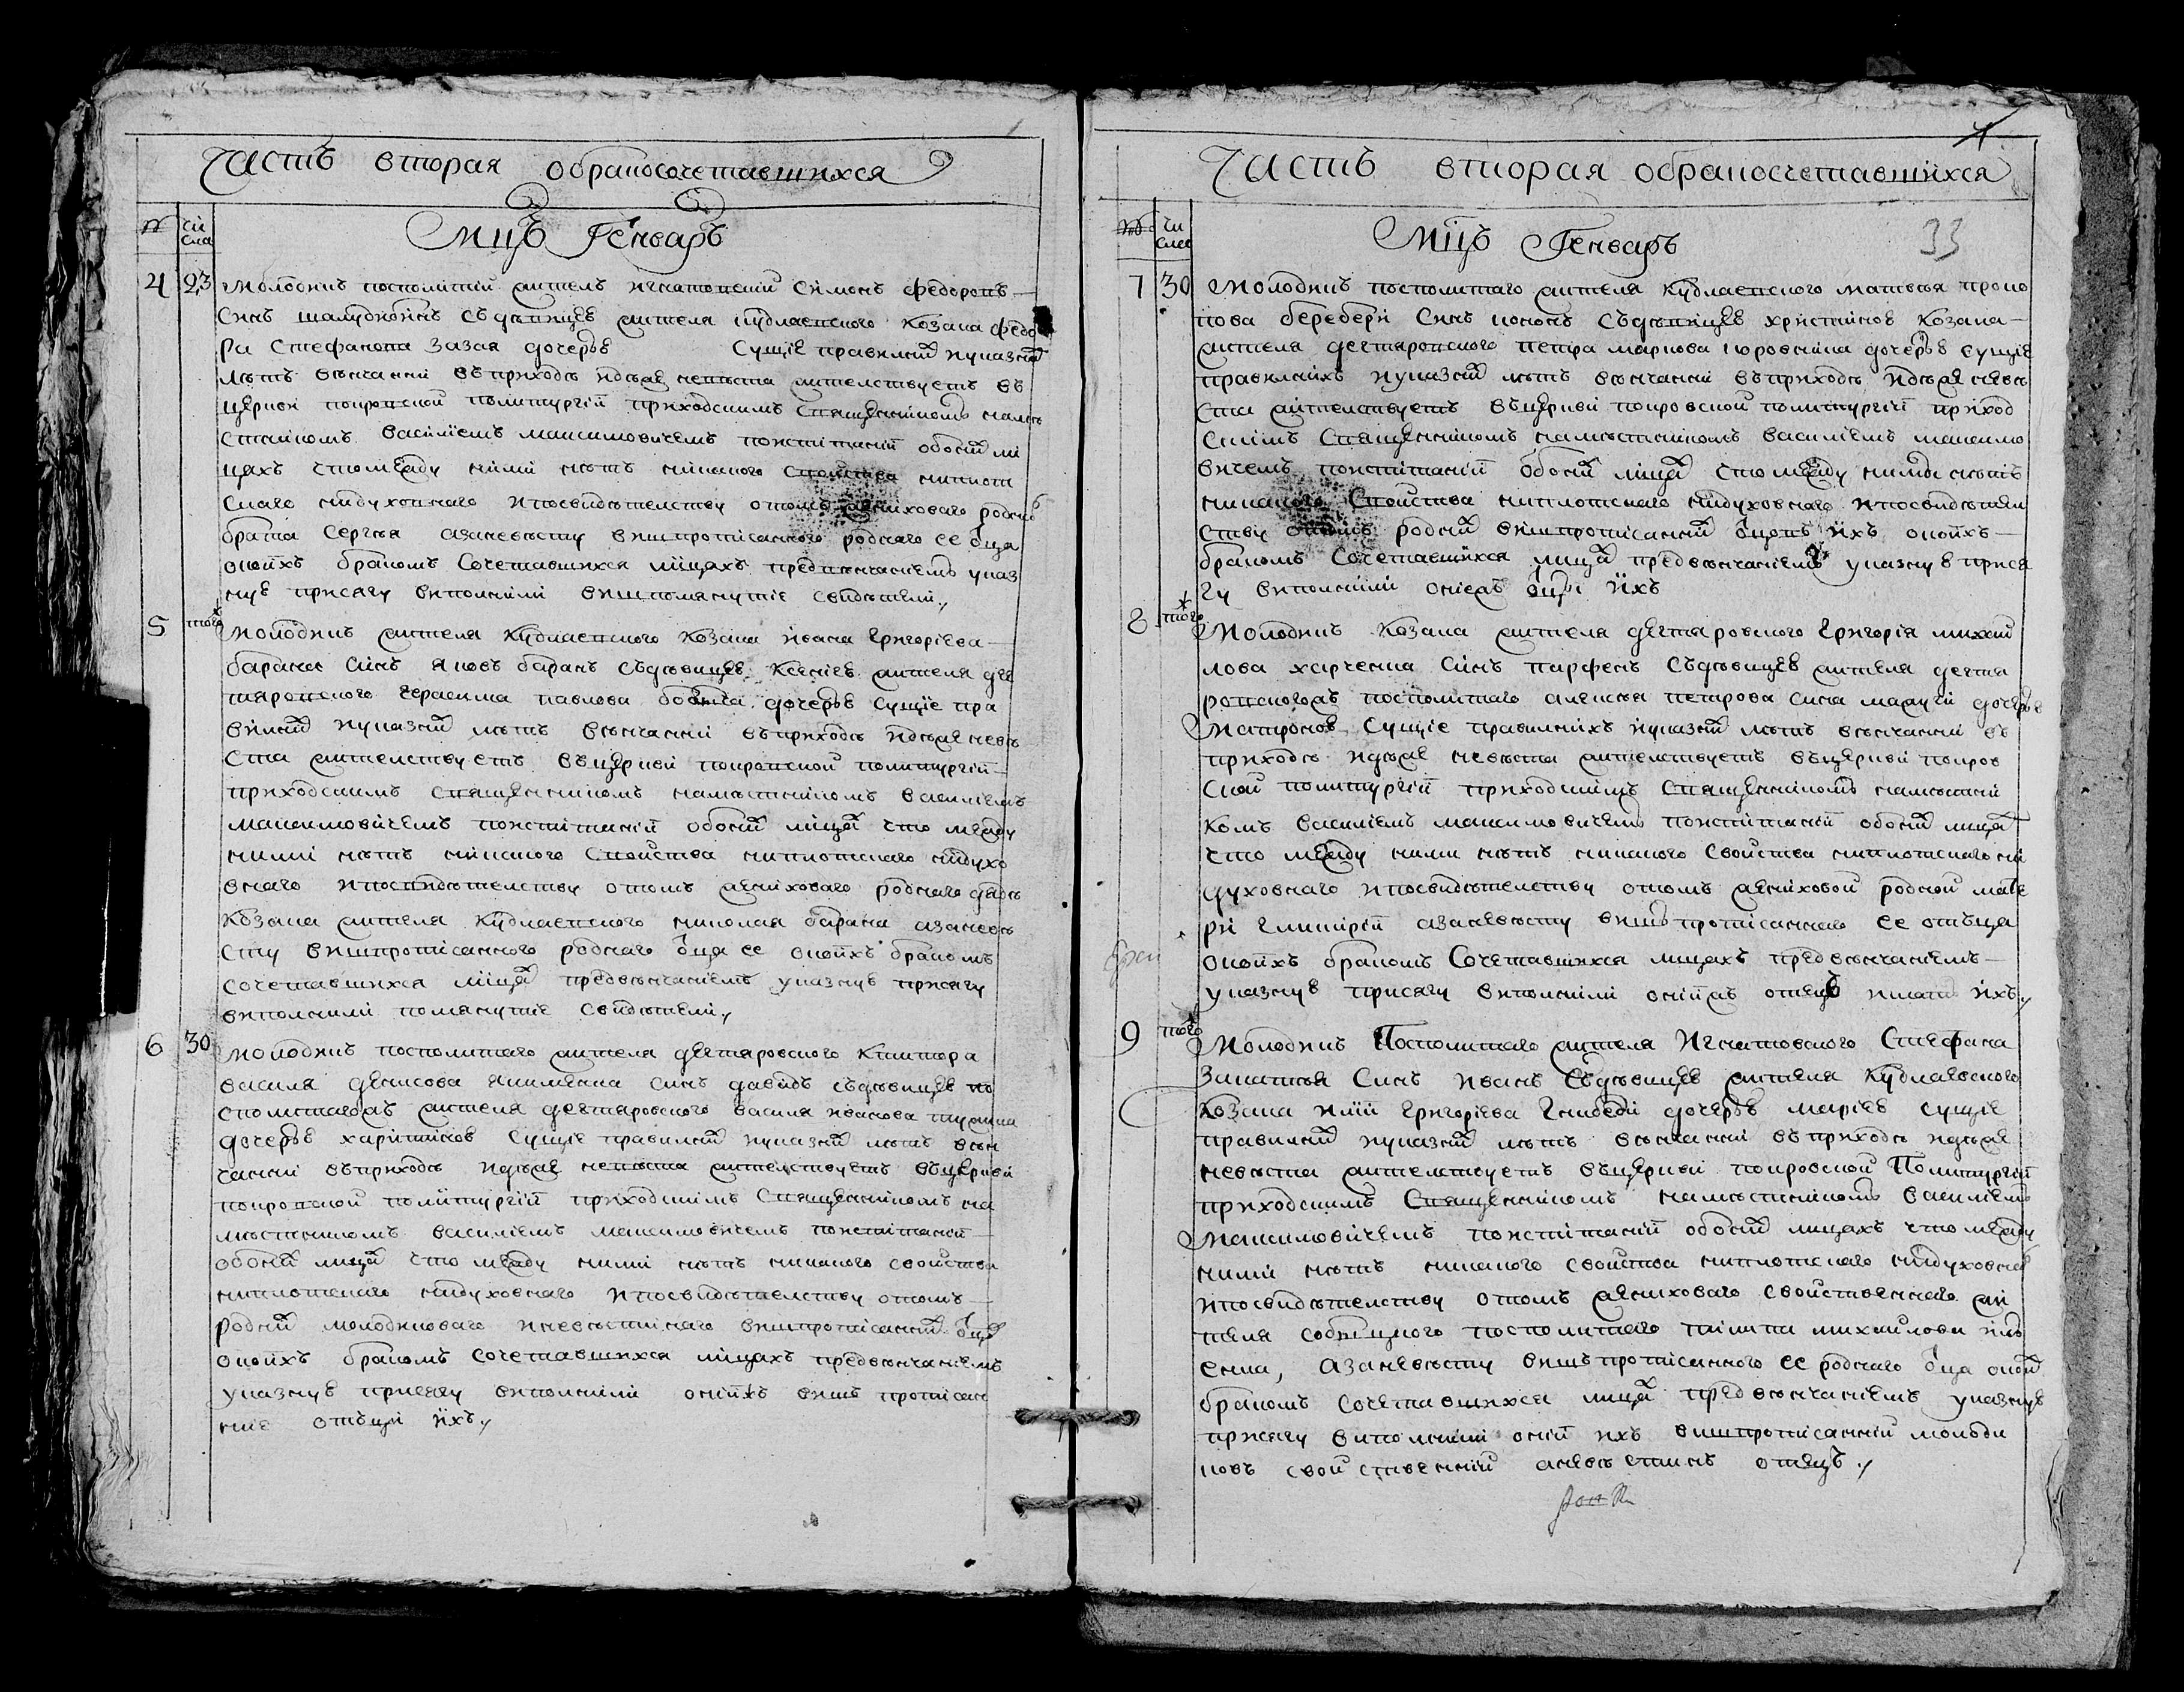 Часть вторая обракосочетавшихся
Мцъ Генварь
№ чи
сла
4 23 Молодикъ посполитій житель игнатовскій Симонъ федоровъ
Синъ шалудкоимъ съдѣвицею жителя кудлаевского козака федо
ра Стефанова Зазая дочерю Сущіе правилний иуказній
лѣтъ вѣнчанни въприходѣ идѣже невѣста жителствуетъ въ
церкви покровской политургіи приходскимъ Священникомъ намѣ
стникомъ василіемъ максимовичемъ попитаніи обоихъ ли
цахъ чтомежду ними нѣтъ никакого Свойства ниплот
скаго нидуховнаго ипосвидѣтелству отомъ жениховаго родного
брата Сергѣя азаневѣсту вишпрописанного родного ее отца
окоихъ бракомъ Сочетавшихся лицахъ предвѣнчаніемъ указ
ную присягу виполнили вишпомянутіе свидѣтели
5 того Молодикъ жителя кудлаевского козака ивана григоріева
барана Синъ яковъ баранъ съдѣвицею Ксеніею жителя дег
тяровского герасима павлова дочерю сущіе пра
вилній иуказній лѣтъ вѣнчанни въприходѣ идѣже невѣ
ста жителствуетъ въцеркви покровской политургіи
приходскимъ Священникомъ намѣстникомъ василіемъ
максимовичемъ попитаніи обоихъ лицахъ что между
ними нѣтъ никакого Свойства ниплотскаго нидухо
внаго ипосвидѣтелству отомъ жениховаго родного дядѣ
козака жителя кудлаевского николая барана азаневѣ
сту вишпрописанного родного отца ее окоихъ бракомъ
сочетавшихся лицахъ предвѣнчаніемъ указную присягу
виполнили помянутіе свидѣтели
6 30 Молодикъ посполитаго жителя дегтяровского
василя денисова якименка синъ давидъ съдѣвицею по
сполитагожъ жителя дегтяровского василя иванова
дочерю харитиною сущіе правилній иуказній лѣтъ вѣн
чанни въприходѣ идѣже невѣста жителствуетъ въцеркви
покровской политургіи приходскимъ Священникомъ на
мѣстникомъ василіемъ максимовичемъ попитаніи
обоихъ лицахъ что между ними нѣтъ никакого свойства
ниплотскаго нидуховнаго ипосвидѣтелству отомъ
родній молодиковаго иневѣстинаго вишпрописанній отцо
окоихъ бракомъ сочетавшихся лицахъ предвѣнчаніемъ
указную присягу виполнили онихъ више прописан
ние отъци ихъ
Часть вторая обракосочетавшихся
33
Мцъ Генварь
чи
слы
7 30 Молодикъ посполитаго жителя кудлаевского матвѣя проко
пова беребери Синъ кононъ Съдѣвицею христиною козака
жителя дегтяровского петра маркова дочерю сущіе
правилнихъ иуказній лѣтъ вѣнчанни въприходѣ идѣже невѣ
ста жителствуетъ въцеркви покровской политургіи приход
скимъ Священникомъ намѣстникомъ василіемъ максимо
вичемъ попитаніи обоихъ лицахъ что между ними нѣтъ
никакого Свойства ниплотскаго нидуховнаго ипосвидѣтел
ству отомъ родній вишпрописанній отцовъ ихъ окоихъ
бракомъ Сочетавшихся лицахъ предвѣнчаніемъ указную прися
гу виполнили ониежъ отци ихъ
8 того Молодикъ козака жителя дегтяровского григорія михай
лова харченка Синъ парфенъ Съдѣвицею жителя дегтя
ровскогожъ посполитаго алексѣя петрова сина дочерю
Матроною Сущіе правилнихъ иуказній лѣтъ вѣнчанни въ
приходѣ идѣже невѣста жителствуетъ въцеркви покров
ской политургіи приходскимъ Священникомъ намѣстни
комъ василіемъ максимовичемъ попитаніи обоихъ лицахъ
что между ними нѣтъ никакого свойства ниплотскаго ни
духовнаго ипосвидѣтелству отомъ жениховой родной мате
ри азаневѣсту вишъпрописанного ее отъца
окоихъ бракомъ Сочетавшихся лицахъ предвѣнчаніемъ
указную присягу виполнили онижъ отецъ имать ихъ
9 того Молодикъ Посполитаго жителя Игнатовского Стефана
Синъ иванъ Съдѣвицею жителя кудлаевского
козака иліи григоріева дочерю маріею сущіе
правилній иуказній лѣтъ вѣнчанни въприходѣ идѣже
невѣста жителствуетъ въцеркви покровской Политургіи
приходскимъ Священникомъ намѣстникомъ василіемъ
Максимовичемъ попитаніи обоихъ лицахъ что между
ними нѣтъ никакого свойства ниплотскаго нидуховнаго
ипосвидѣтелству отомъ жениховаго свойственнаго жи
теля посполитаго михайлова
азаневѣсту вишъпрописанного ее родного отца окоихъ
бракомъ сочетавшихся лицахъ предвѣнчаніемъ указную
присягу виполнили ихъ вишпрописанній молоди
ковъ свойственній аневѣстинъ отецъ